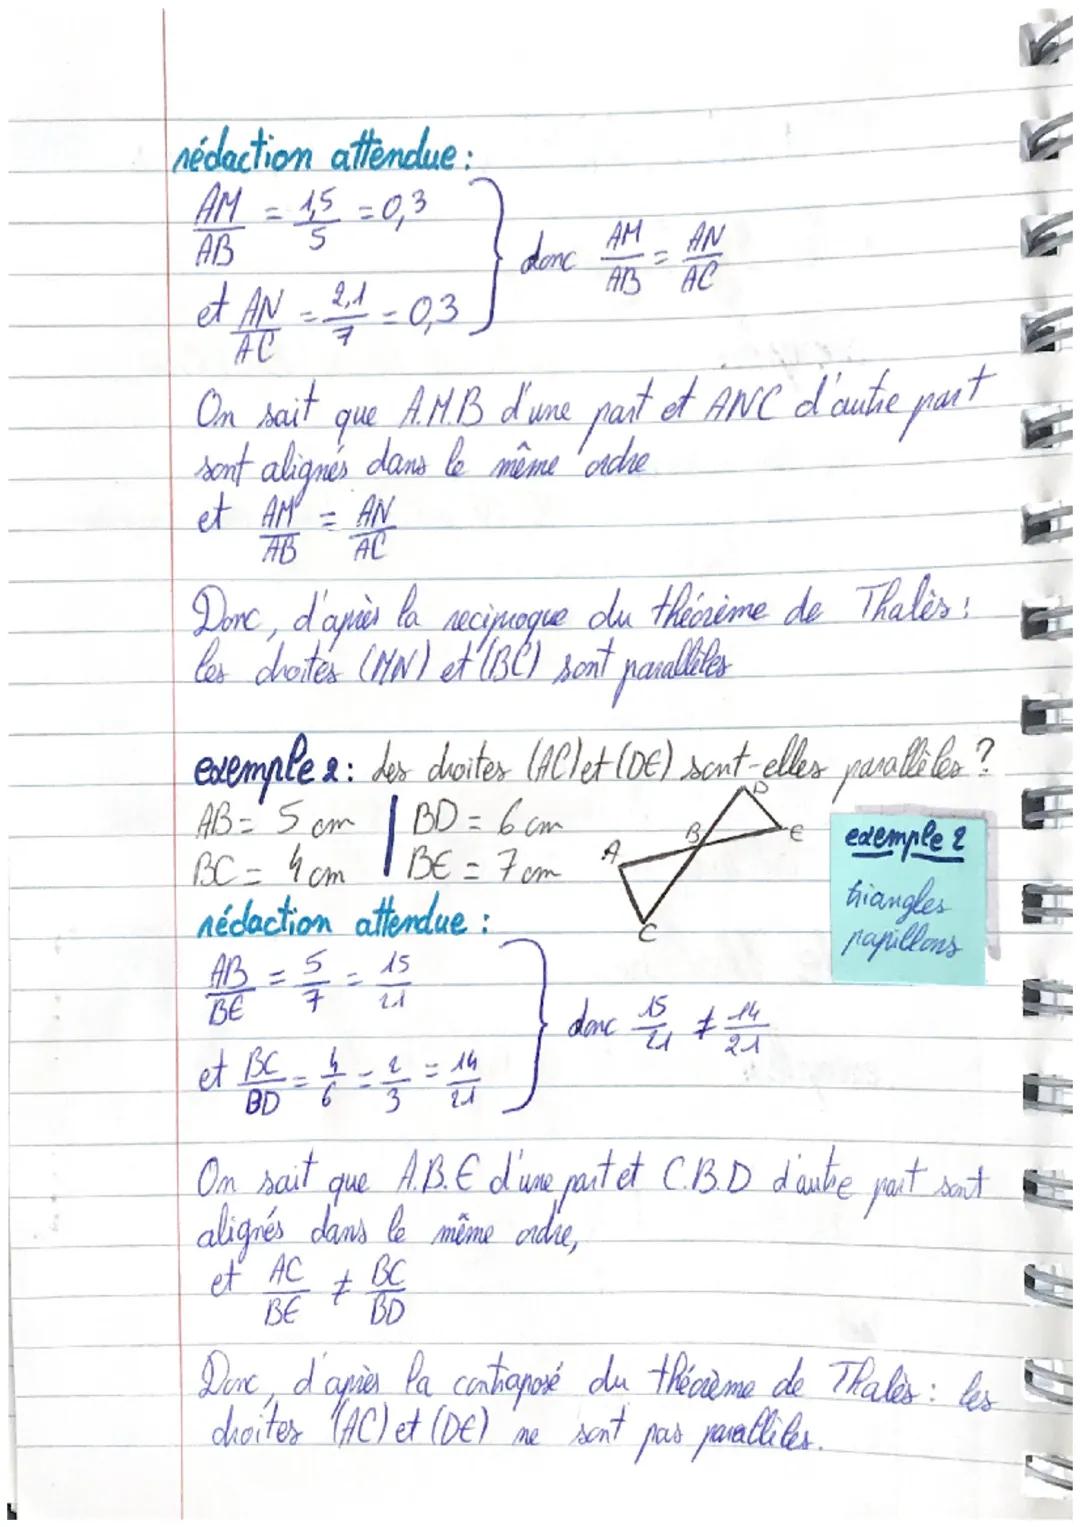 rédaction attendue :
AM/AB = 1,5/5 = 0,3
et AN/AC = 2,1/7 = 0,3
donc AM/AB = AN/AC
On sait que A.M.B d'une part et ANC d'autre part
sont alignés dans le même ordre
et AM/AB = AN/AC
Donc, d'après la reciproque du théorème de Thalès :
les droites (MN) et (BC) sont parallèles
exemple 2 : les droites (AC) et (DE) sont-elles parallèles ?
AB = 5 cm | BD = 6 cm
BC = 4 cm | BE = 7 cm
A B C D E
exemple 2
triangles
papillons
rédaction attendue :
AB/BE = 5/7 = 15/21
et BC/BD = 4/6 = 2/3 = 14/21
donc 15/21 ≠ 14/21
On sait que A.B.E d'une part et C.B.D d'autre part sont
alignés dans le même ordre,
et AC/BE ≠ BC/BD
Donc, d'après la contraposé du théorème de Thalès : les
droites (AC) et (DE) ne sont pas parallèles.